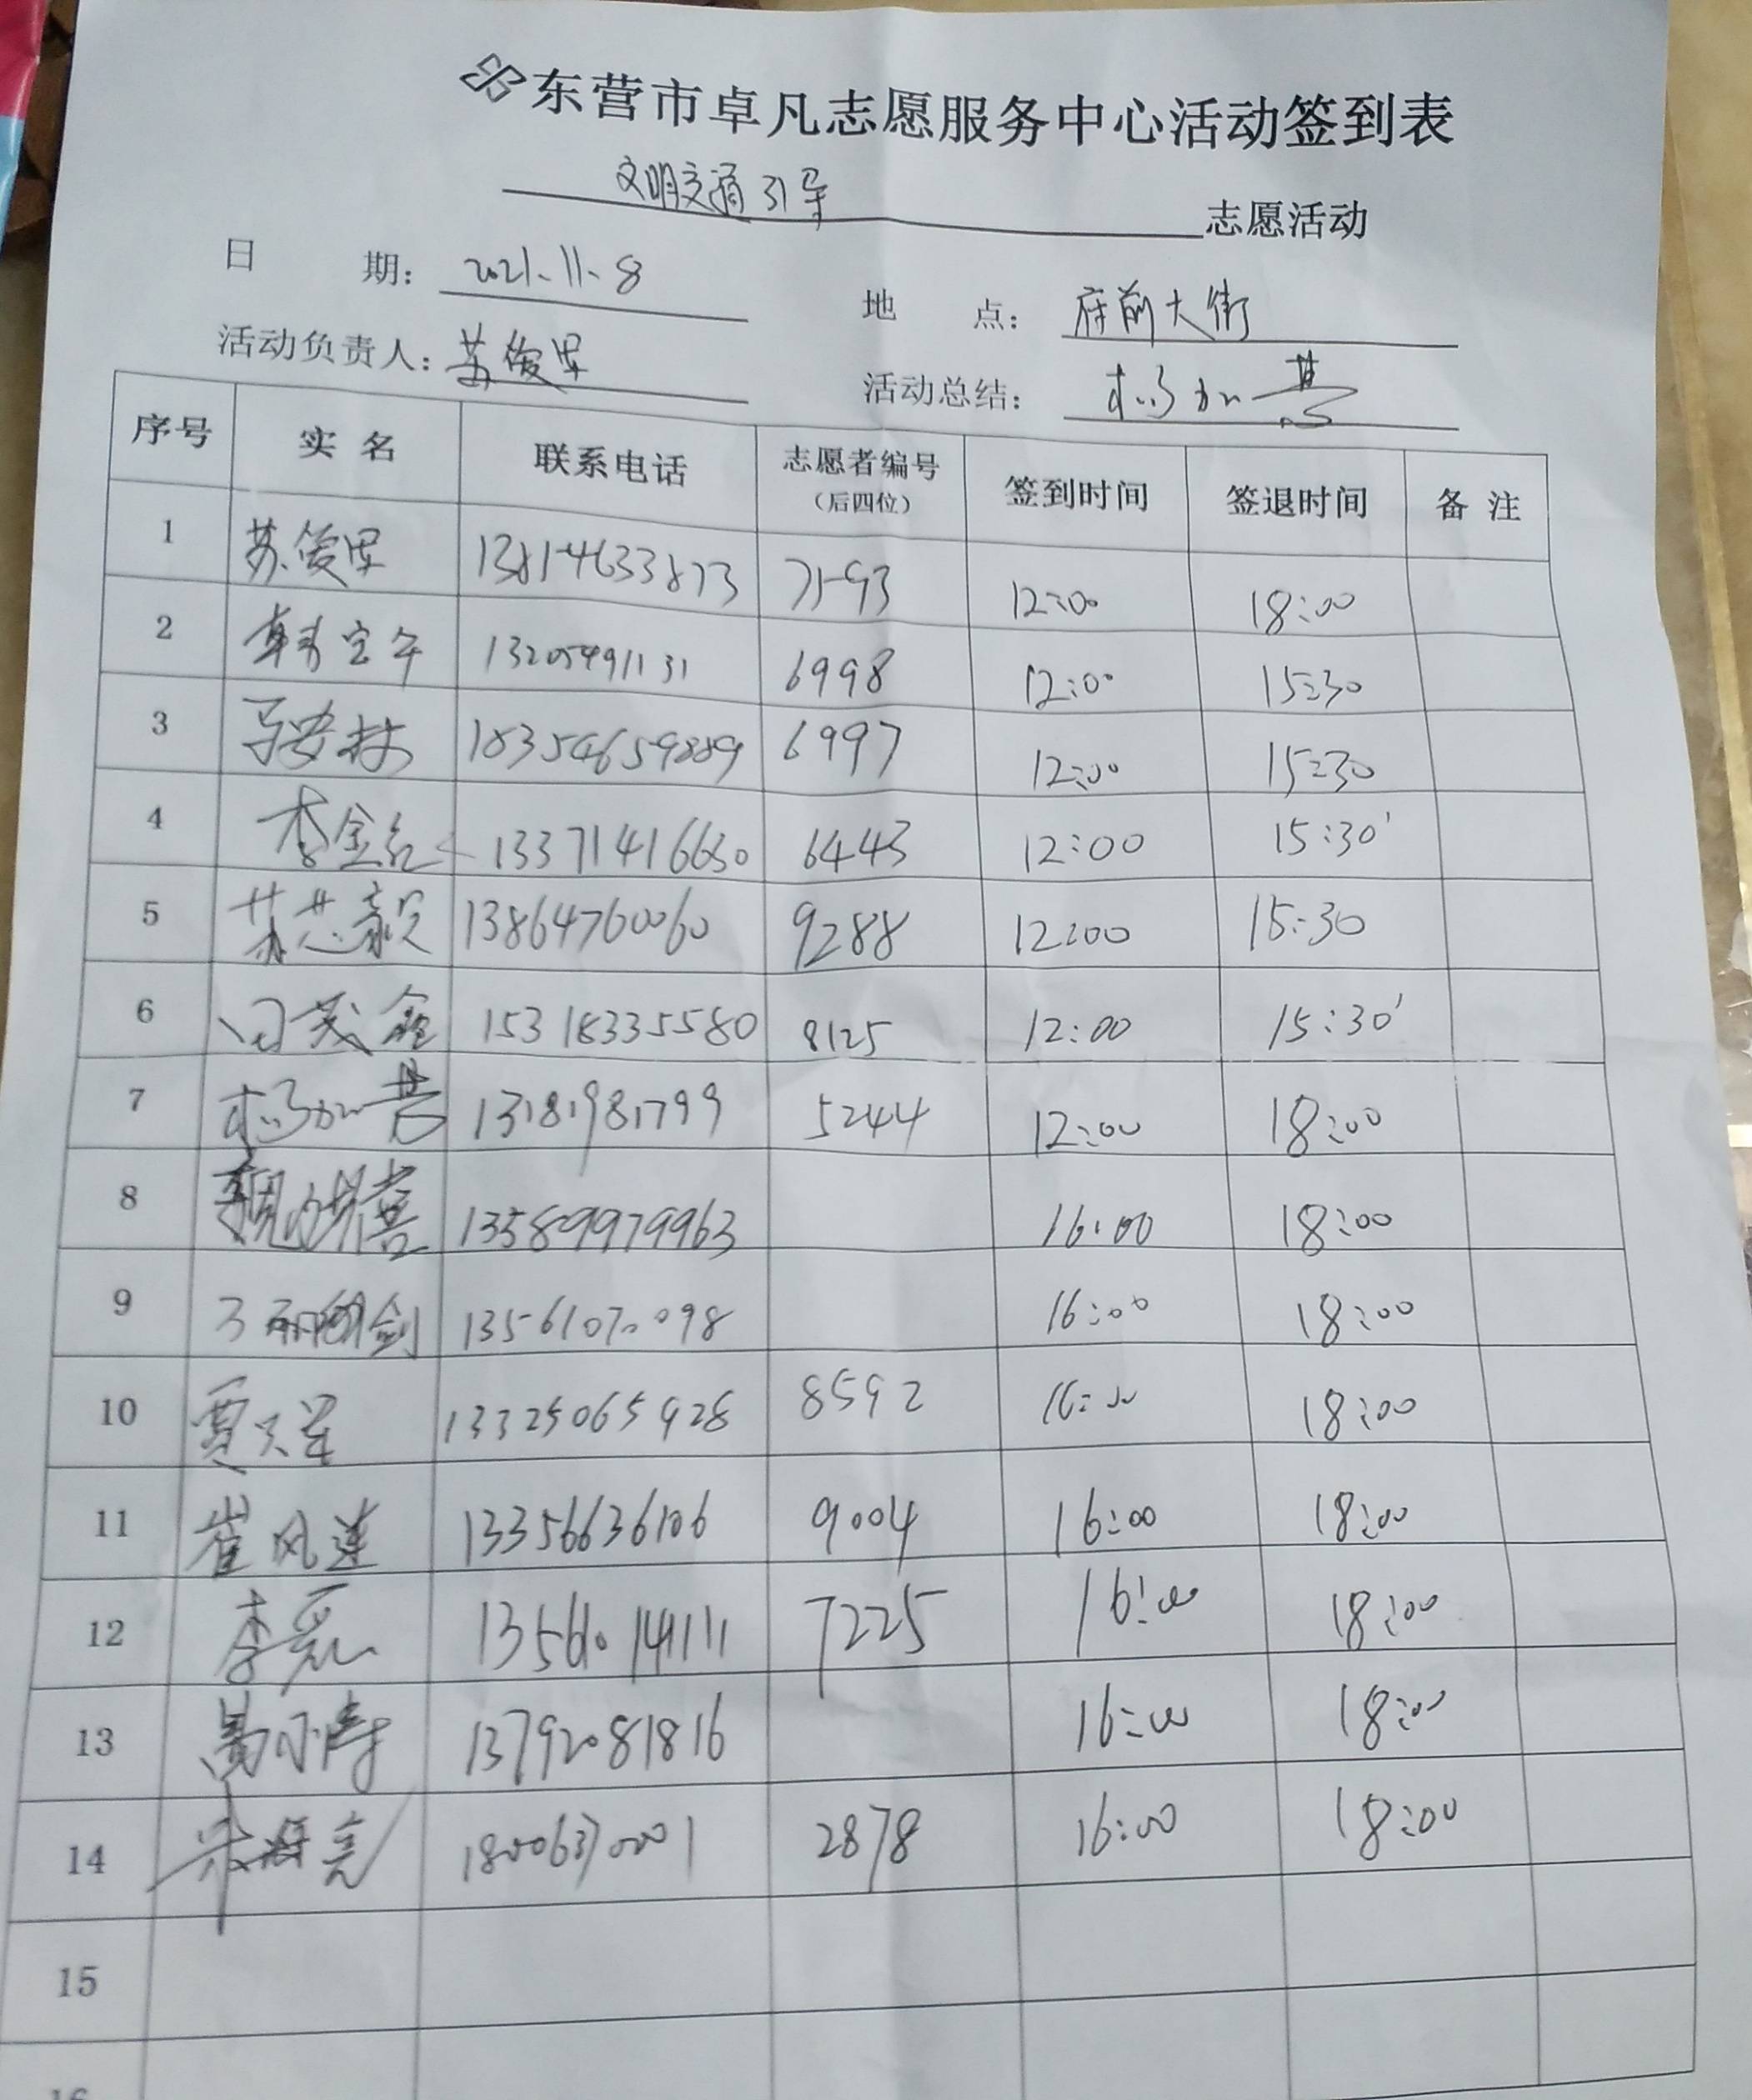 东营市卓凡志愿服务中心活动签到表
文明交通引导 志愿活动
日 期: 2021、11、8 地 点: 府前大街
活动负责人: 苏俊军 活动总结: 杨加营
序号 实名 联系电话 志愿者编号(后四位) 签到时间 签退时间 备注
1 苏俊军 13814633873 7593 12:00 18:00
2 韩宝午 13205491131 6998 12:00 15:30
3 18354659889 6997 12:00 15:30
4 李金红 13371416630 6443 12:00 15:30
5 13864760060 9288 12:00 15:30
6 田茂鑫 15318335580 8125 12:00 15:30
7 杨加营 13181981799 5244 12:00 18:00
8 13589979963 16:00 18:00
9 13561070098 16:00 18:00
10 贾天军 13325065928 8592 16:00 18:00
11 崔风莲 13356636106 9004 16:00 18:00
12 李 13561014111 7225 16:00 18:00
13 13792081816 16:00 18:00
14 18006370001 2878 16:00 18:00
15
16